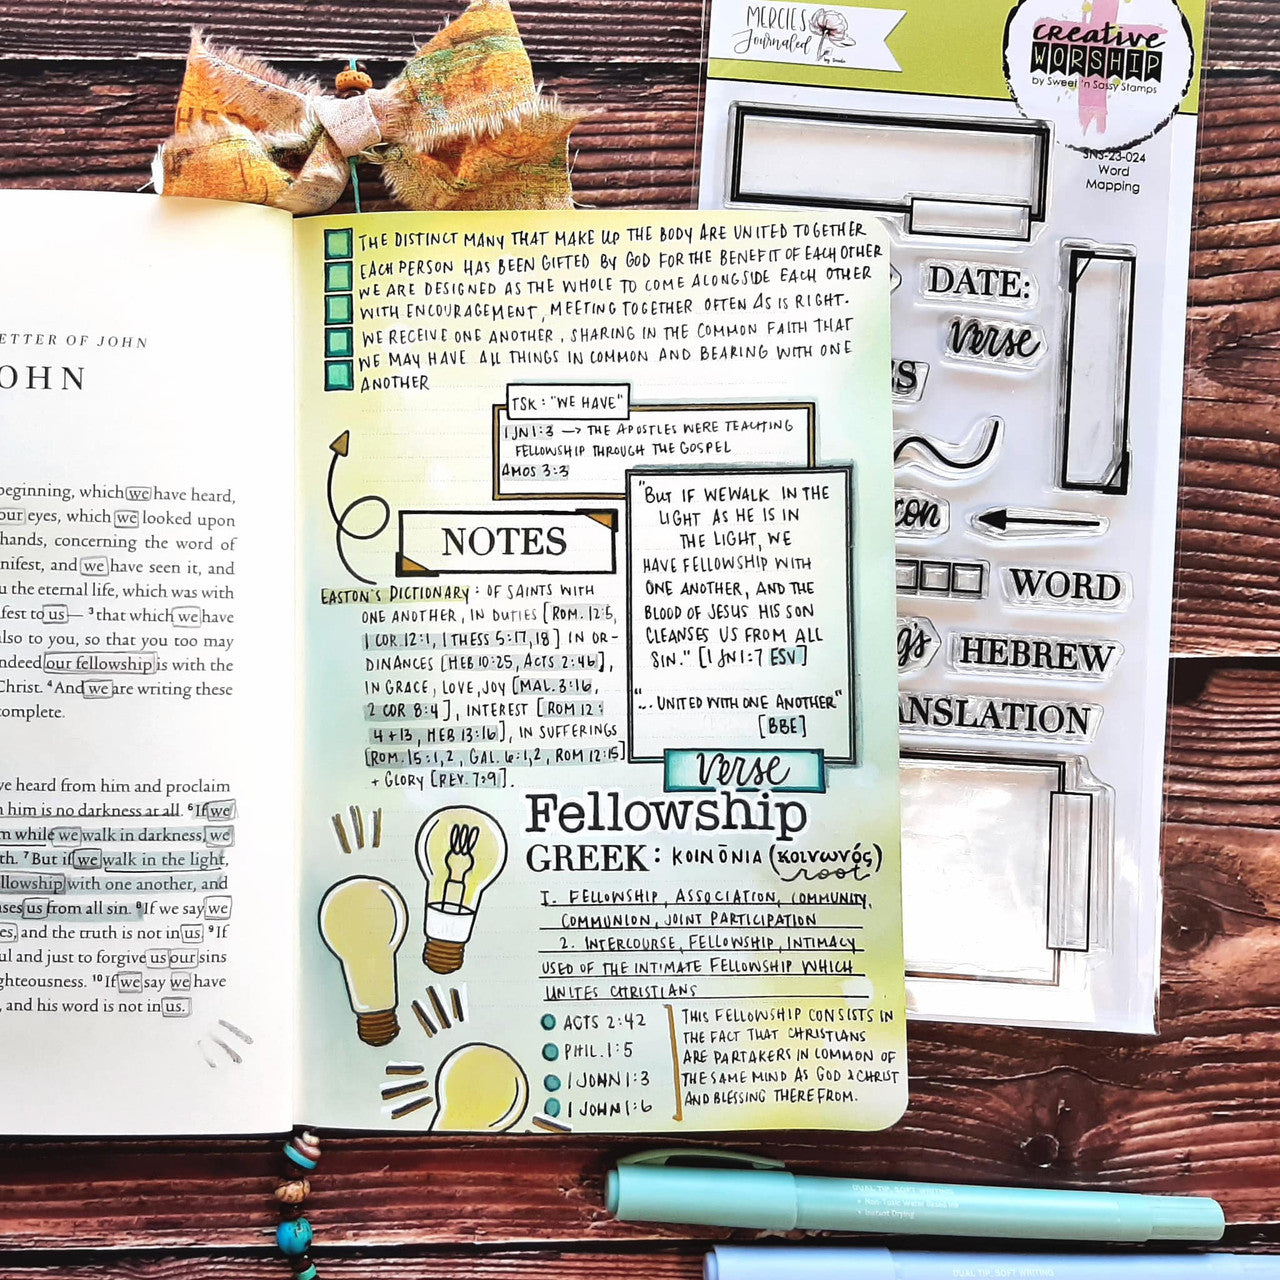 MERCIES
Journaled
by Soada
creative
WORSHIP
by Sweet 'n Sassy Stamps
SNS-23-024
Word
Mapping
DATE:
Verse
WORD
HEBREW
ETTER OF JOHN
OHN
beginning, which we have heard,
our eyes, which we looked upon
hands, concerning the word of
nifest, and we have seen it, and
u the eternal life, which was with
fest to us— ³that which we have
also to you, so that you too may
ndeed our fellowship is with the
Christ. ⁴And we are writing these
omplete.
ve heard from him and proclaim
n him is no darkness at all. ⁶If we
m while we walk in darkness, we
th. ⁷But if we walk in the light,
llowship with one another, and
ses us from all sin. ⁸If we say we
es, and the truth is not in us. ⁹If
ul and just to forgive us our sins
ghteousness. ¹⁰If we say we have
, and his word is not in us.
THE DISTINCT MANY THAT MAKE UP THE BODY ARE UNITED TOGETHER
EACH PERSON HAS BEEN GIFTED BY GOD FOR THE BENEFIT OF EACH OTHER
WE ARE DESIGNED AS THE WHOLE TO COME ALONGSIDE EACH OTHER
WITH ENCOURAGEMENT, MEETING TOGETHER OFTEN AS IS RIGHT.
WE RECEIVE ONE ANOTHER, SHARING IN THE COMMON FAITH THAT
WE MAY HAVE ALL THINGS IN COMMON AND BEARING WITH ONE
ANOTHER
TSK: "WE HAVE"
1 JN 1:3 → THE APOSTLES WERE TEACHING
FELLOWSHIP THROUGH THE GOSPEL
AMOS 3:3
"BUT IF WE WALK IN THE
LIGHT AS HE IS IN
THE LIGHT, WE
HAVE FELLOWSHIP WITH
ONE ANOTHER, AND THE
BLOOD OF JESUS HIS SON
CLEANSES US FROM ALL
SIN." [1 JN 1:7 ESV]
"... UNITED WITH ONE ANOTHER"
[BBE]
Verse
NOTES
EASTON'S DICTIONARY: OF SAINTS WITH
ONE ANOTHER, IN DUTIES [ROM. 12:5,
1 COR 12:1, 1 THESS 5:17,18] IN OR-
DINANCES [HEB 10:25, ACTS 2:46],
IN GRACE, LOVE, JOY [MAL. 3:16,
2 COR 8:4], INTEREST [ROM 12:
4+13, HEB 13:16], IN SUFFERINGS
[ROM. 15:1,2, GAL. 6:1,2, ROM 12:15]
+ GLORY [REV. 7:9].
Fellowship
GREEK: KOINŌNIA (κοινωνός)
root
1. FELLOWSHIP, ASSOCIATION, COMMUNITY,
COMMUNION, JOINT PARTICIPATION
2. INTERCOURSE, FELLOWSHIP, INTIMACY
USED OF THE INTIMATE FELLOWSHIP WHICH
UNITES CHRISTIANS
ACTS 2:42
PHIL. 1:5
1 JOHN 1:3
1 JOHN 1:6
THIS FELLOWSHIP CONSISTS IN
THE FACT THAT CHRISTIANS
ARE PARTAKERS IN COMMON OF
THE SAME MIND AS GOD & CHRIST
AND BLESSING THEREFROM.
DUAL TIP, SOFT WRITING
• Non-Toxic Water Based Ink
• Instant Drying
DUAL TIP, SOFT WRITING